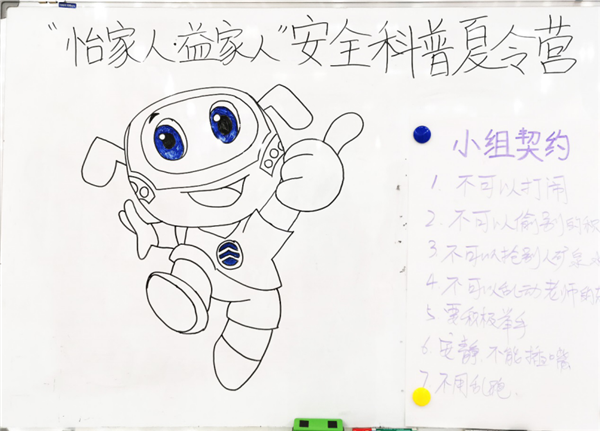 “怡家人·益家人”安全科普夏令营
小组契约
1. 不可以打闹
2. 不可以偷别的
3 不可以抢别人矿泉水
4 不可以乱动老师的
5 要积极举手
6 安静 不能插嘴
7 不用乱跑.